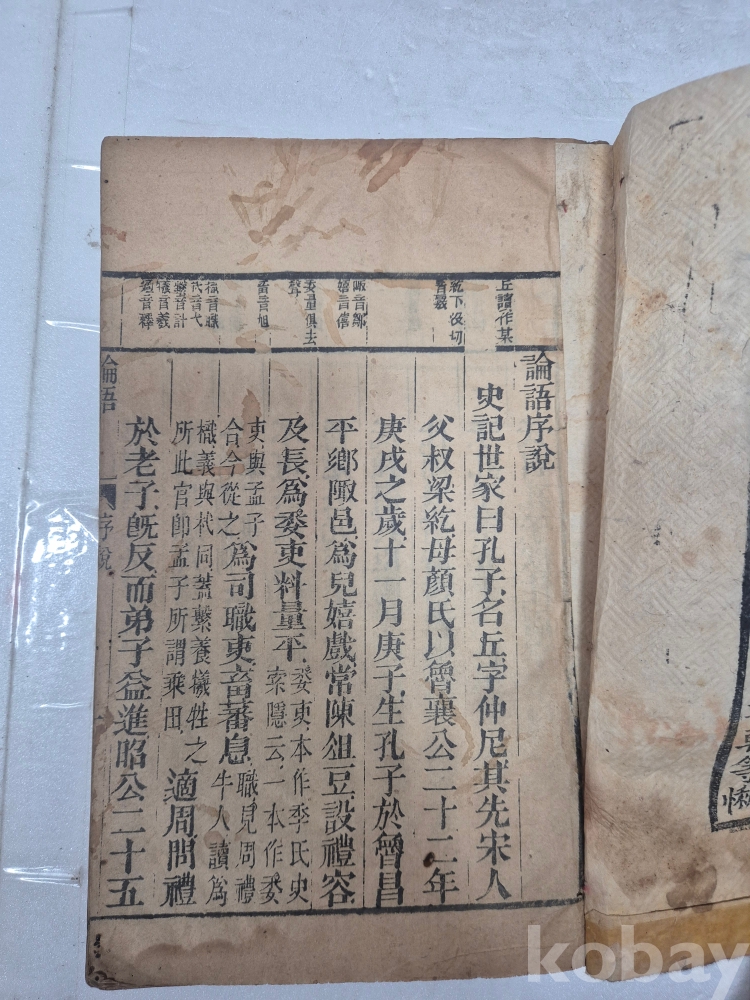 丘讀作某
紇下没切
陬音鄒
嬉音僖
委量俱去
聲
畜音旭
樴音職
杙音弋
繫音計
犧音羲
適音釋
論語序說
史記世家曰孔子名丘字仲尼其先宋人
父叔梁紇母顏氏以魯襄公二十二年
庚戌之歲十一月庚子生孔子於魯昌
平鄉陬邑爲兒嬉戲常陳俎豆設禮容
及長爲委吏料量平委吏本作季氏史索隱云一本作委
吏與孟子合今從之爲司職吏畜蕃息職見周禮牛人讀爲
樴義與杙同蓋繫養犧牲之所此官即孟子所謂乘田適周問禮
於老子旣反而弟子益進昭公二十五
論語 序說
kobay